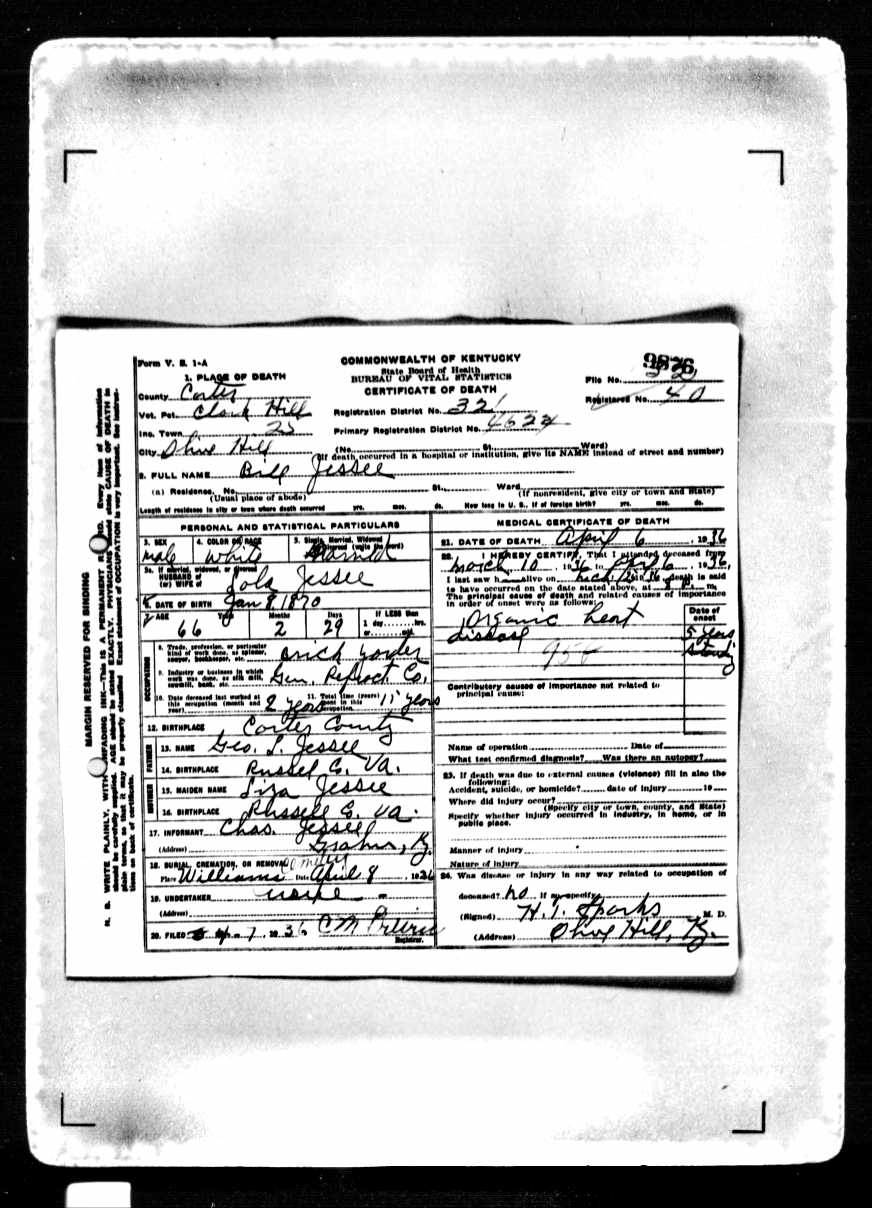 Form V. S. 1-A
COMMONWEALTH OF KENTUCKY
State Board of Health
BUREAU OF VITAL STATISTICS
CERTIFICATE OF DEATH
9876
File No.
Registered No. 40
1. PLACE OF DEATH
County Carter
Vot. Pct. Clark Hill
Registration District No. 32
Inc. Town
Primary Registration District No.
City Olive Hill (No. St. Ward)
(If death occurred in a hospital or institution, give its NAME instead of street and number)
2. FULL NAME Bill Jessee
(a) Residence. No. St., Ward
(Usual place of abode) (If nonresident, give city or town and State)
Length of residence in city or town where death occurred yrs. mos. ds. How long in U. S., if of foreign birth? yrs. mos. ds.
PERSONAL AND STATISTICAL PARTICULARS
3. SEX 4. COLOR OR RACE 5. Single, Married, Widowed
or Divorced (write the word)
male white Married
5a. If married, widowed, or divorced
HUSBAND of
(or) WIFE of Lola Jessee
6. DATE OF BIRTH Jan 8, 1870
7. AGE Years Months Days If LESS than
1 day hrs.
or min.
66 2 29
OCCUPATION
8. Trade, profession, or particular
kind of work done, as spinner,
sawyer, bookkeeper, etc.
9. Industry or business in which
work was done, as silk mill,
sawmill, bank, etc. Gen. Refract Co.
10. Date deceased last worked at
this occupation (month and
year) 2 years
11. Total time (years)
spent in this
occupation 15 years
12. BIRTHPLACE Carter County
FATHER
13. NAME Geo. S. Jessee
14. BIRTHPLACE Russel Co. Va.
MOTHER
15. MAIDEN NAME Liza Jessee
16. BIRTHPLACE Russell Co. Va.
17. INFORMANT Chas. Jessee
(Address) Grahn, Ky.
18. BURIAL, CREMATION, OR REMOVAL
Place Williams Date April 8, 1936
19. UNDERTAKER none
(Address)
20. FILED 4-7, 1936 C M
Registrar.
MEDICAL CERTIFICATE OF DEATH
21. DATE OF DEATH April 6, 1936
22. I HEREBY CERTIFY, That I attended deceased from
March 10, 1936 to April 6, 1936,
I last saw h alive on 1936 death is said
to have occurred on the date stated above, at 8 P. m.
The principal cause of death and related causes of importance
in order of onset were as follows:
Date of
onset
Organic heart
disease
5 years
standing
Contributory causes of importance not related to
principal cause:
Name of operation Date of
What test confirmed diagnosis? Was there an autopsy?
23. If death was due to external causes (violence) fill in also the
following:
Accident, suicide, or homicide? date of injury 19
Where did injury occur?
(Specify city or town, county, and State)
Specify whether injury occurred in industry, in home, or in
public place.
Manner of injury
Nature of injury
24. Was disease or injury in any way related to occupation of
deceased? no If so, specify
(Signed) H. T. Sparks M. D.
(Address) Olive Hill, Ky.
MARGIN RESERVED FOR BINDING